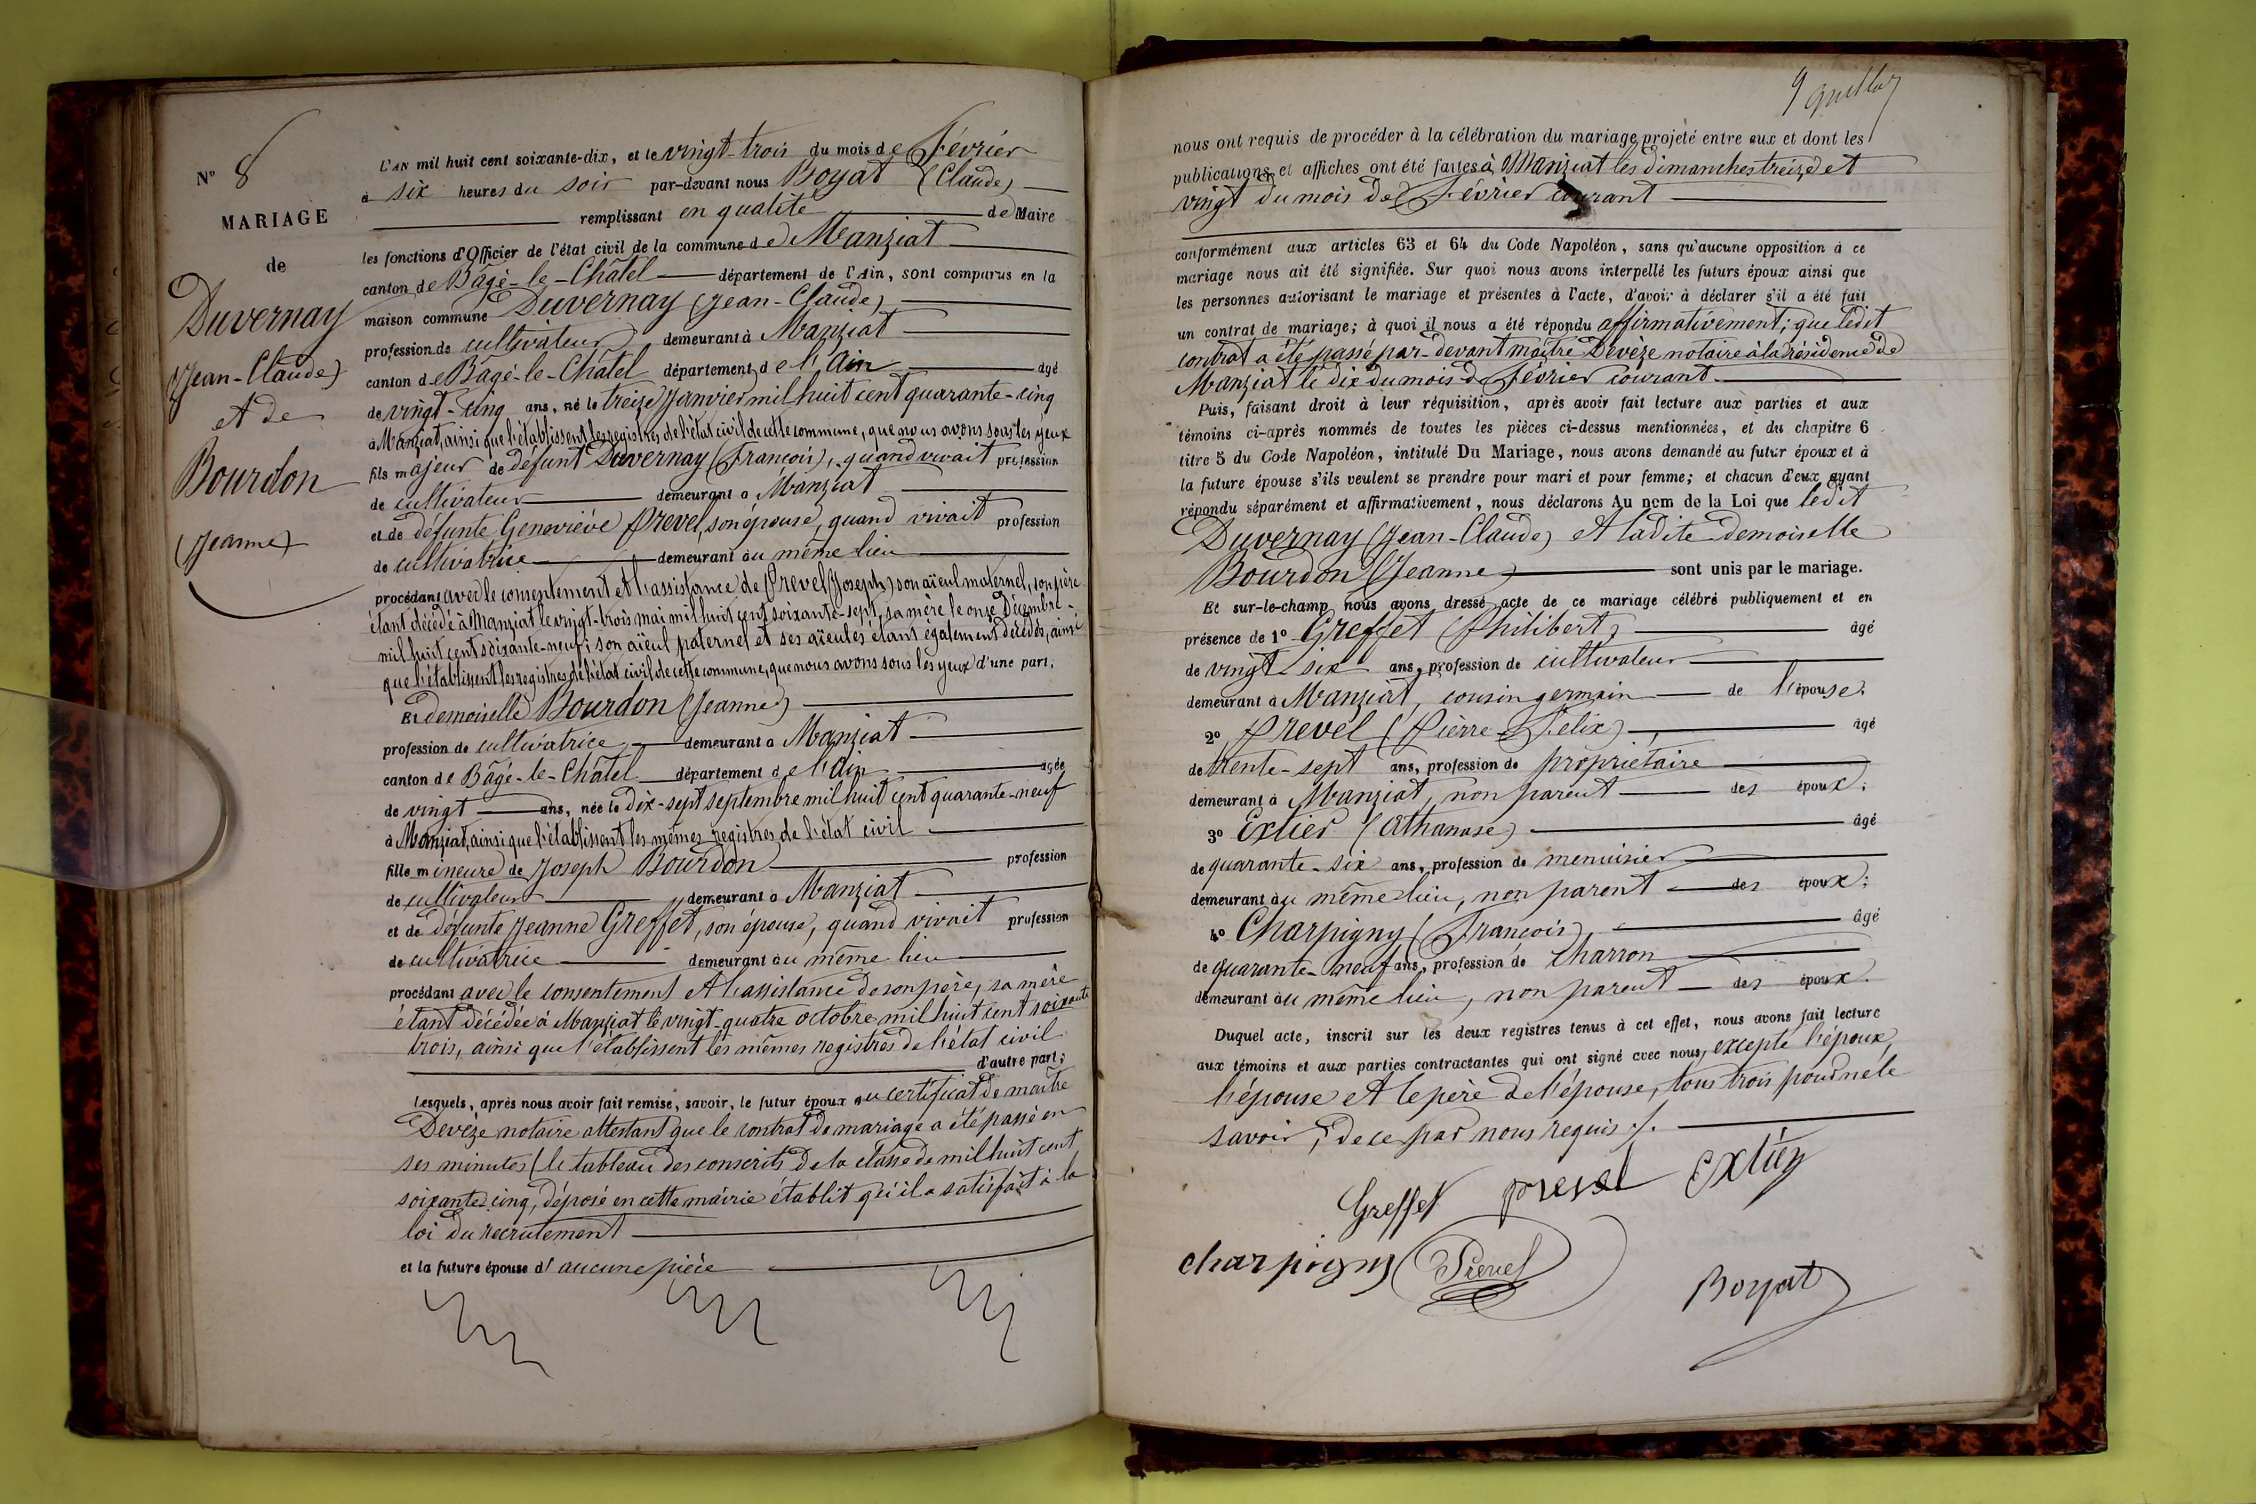 N° 8
MARIAGE
de
Duvernay
(Jean-Claude)
et de
Bourdon
(Jeanne)
L'AN mil huit cent soixante-dix, et le vingt-trois du mois de Février
à six heures du soir par-devant nous Boyat (Claude)
remplissant en qualité de Maire
les fonctions d'Officier de l'état civil de la commune de Manziat
canton de Bâgé-le-Châtel département de l'Ain, sont comparus en la
maison commune Duvernay (Jean-Claude)
profession de cultivateur demeurant à Manziat
canton de Bâgé-le-Châtel département de l'Ain âgé
de vingt-cinq ans, né le treize Janvier mil huit cent quarante-cinq
à Manziat, ainsi que l'établissent les registres de l'état civil de cette commune, que nous avons sous les yeux
fils majeur de défunt Duvernay (François), quand vivait profession
de cultivateur demeurant à Manziat
et de défunte Geneviève Prevel, son épouse, quand vivait profession
de cultivatrice demeurant au même lieu
procédant avec le consentement et l'assistance de Prevel (Joseph) son aïeul maternel, son père
étant décédé à Manziat le vingt-trois mai mil huit cent soixante-sept, sa mère le onze Décembre
mil huit cent soixante-neuf; son aïeul paternel et ses aïeules étant également décédés, ainsi
que l'établissent les registres de l'état civil de cette commune, que nous avons sous les yeux d'une part.
Et demoiselle Bourdon (Jeanne)
profession de cultivatrice demeurant à Manziat
canton de Bâgé-le-Châtel département de l'Ain âgée
de vingt ans, née le dix-sept septembre mil huit cent quarante-neuf
à Manziat, ainsi que l'établissent les mêmes registres de l'état civil
fille mineure de Joseph Bourdon profession
de cultivateur demeurant à Manziat
et de défunte Jeanne Greffet, son épouse, quand vivait profession
de cultivatrice demeurant au même lieu
procédant avec le consentement et l'assistance de son père, sa mère
étant décédée à Manziat le vingt-quatre octobre mil huit cent soixante
trois, ainsi que l'établissent les mêmes registres de l'état civil
d'autre part;
Lesquels, après nous avoir fait remise, savoir, le futur époux du certificat de maître
Devèze notaire attestant que le contrat de mariage a été passé en
ses minutes (le tableau des conscrits de la classe de mil huit cent
soixante-cinq, déposé en cette mairie établit qu'il a satisfait à la
loi du recrutement
et la future épouse d'aucune pièce
nous ont requis de procéder à la célébration du mariage projeté entre eux et dont les
publications et affiches ont été faites à Manziat les dimanches treize et
vingt du mois de Février courant
conformément aux articles 63 et 64 du Code Napoléon, sans qu'aucune opposition à ce
mariage nous ait été signifiée. Sur quoi nous avons interpellé les futurs époux ainsi que
les personnes autorisant le mariage et présentes à l'acte, d'avoir à déclarer s'il a été fait
un contrat de mariage; à quoi il nous a été répondu affirmativement; que ledit
contrat a été passé par-devant maître Devèze notaire à la résidence de
Manziat le dix du mois de Février courant
Puis, faisant droit à leur réquisition, après avoir fait lecture aux parties et aux
témoins ci-après nommés de toutes les pièces ci-dessus mentionnées, et du chapitre 6
titre 5 du Code Napoléon, intitulé Du Mariage, nous avons demandé au futur époux et à
la future épouse s'ils veulent se prendre pour mari et pour femme; et chacun d'eux ayant
répondu séparément et affirmativement, nous déclarons Au nom de la Loi que ledit
Duvernay (Jean-Claude) et ladite demoiselle
Bourdon (Jeanne) sont unis par le mariage.
Et sur-le-champ nous avons dressé acte de ce mariage célébré publiquement et en
présence de 1° Greffet (Philibert) âgé
de vingt six ans, profession de cultivateur
demeurant à Manziat, cousin germain de l'épouse.
2° Prevel (Pierre-Félix), âgé
de trente-sept ans, profession de propriétaire
demeurant à Manziat, non parent des époux;
3° Extier (Athanase) âgé
de quarante-six ans, profession de menuisier
demeurant au même lieu, non parent des époux;
4° Charpigny (François), âgé
de quarante-neuf ans, profession de charron
demeurant au même lieu, non parent des époux.
Duquel acte, inscrit sur les deux registres tenus à cet effet, nous avons fait lecture
aux témoins et aux parties contractantes qui ont signé avec nous, excepté l'époux,
l'épouse et le père de l'épouse, tous trois pour ne le
savoir, de ce par nous requis ./.
Greffet prevel Extier
charpigny Prevel
Boyat